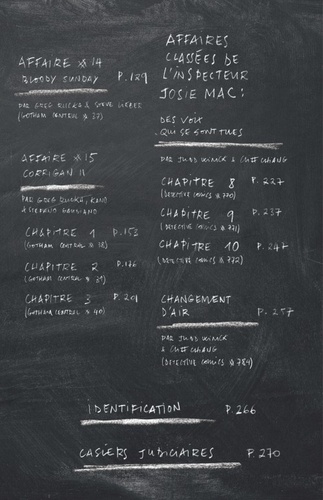 AFFAIRE N°14
BLOODY SUNDAY P.129
PAR GREG RUCKA & STEVE LIEBER
(GOTHAM CENTRAL # 37)
AFFAIRE N°15
CORRIGAN II
PAR GREG RUCKA, KANO
& STEFANO GAUDIANO
CHAPITRE 1 P.153
(GOTHAM CENTRAL # 38)
CHAPITRE 2 P.176
(GOTHAM CENTRAL # 39)
CHAPITRE 3 P.201
(GOTHAM CENTRAL # 40)
AFFAIRES
CLASSÉES DE
L'INSPECTEUR
JOSIE MAC:
DES VOIX
QUI SE SONT TUES
PAR JUDD WINICK & CLIFF CHIANG
CHAPITRE 8 P.227
(DETECTIVE COMICS # 770)
CHAPITRE 9 P.237
(DETECTIVE COMICS # 771)
CHAPITRE 10 P.247
(DETECTIVE COMICS # 772)
CHANGEMENT
D'AIR P.257
PAR JUDD WINICK
& CLIFF CHIANG
(DETECTIVE COMICS # 784)
IDENTIFICATION P.266
CASIERS JUDICIAIRES P.270